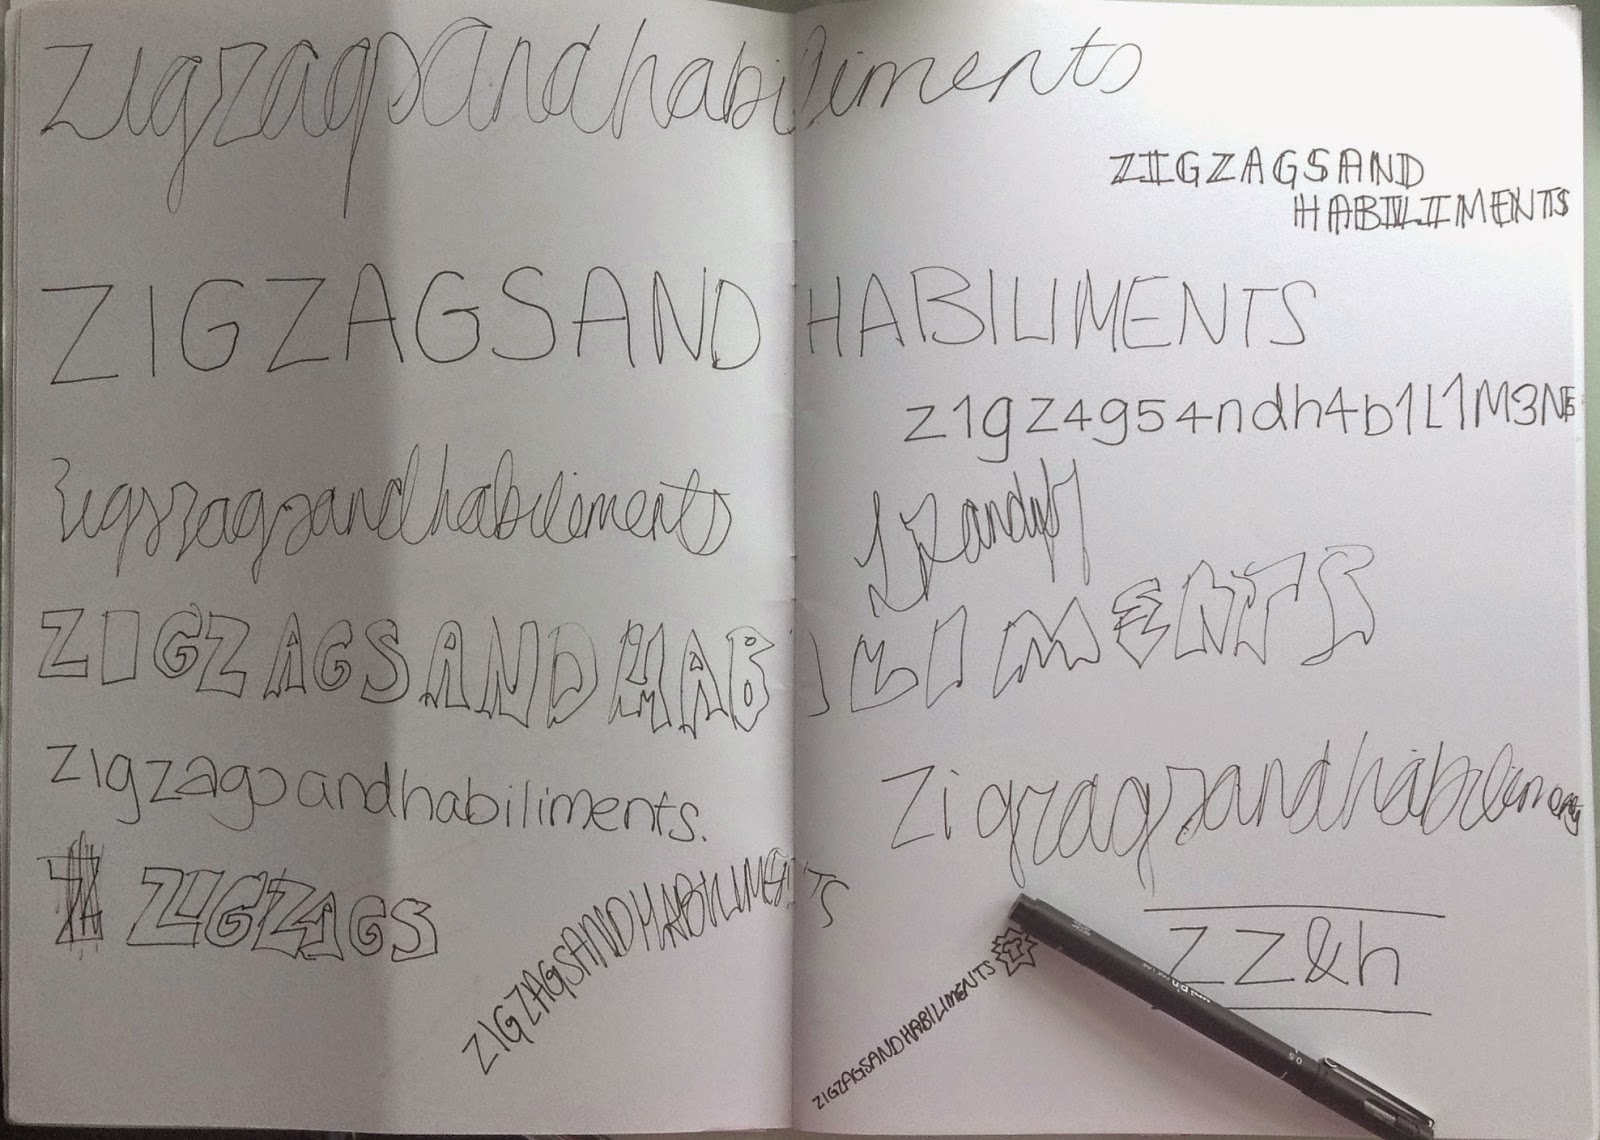 zigzagsandhabiliments
ZIGZAGSAND
HABILIMENTS
ZIGZAGSANDHABILIMENTS
z1gz4g54ndh4b1L1M3NT5
zigzagsandhabiliments
ZIGZAGSANDHABILIMENTS
zigzagsandhabiliments.
zigzagsandhabiliments
Z ZIGZAGS
ZIGZAGSANDHABILIMENTS
ZZ&h
ZIGZAGSANDHABILIMENTS
uni pin
0.5